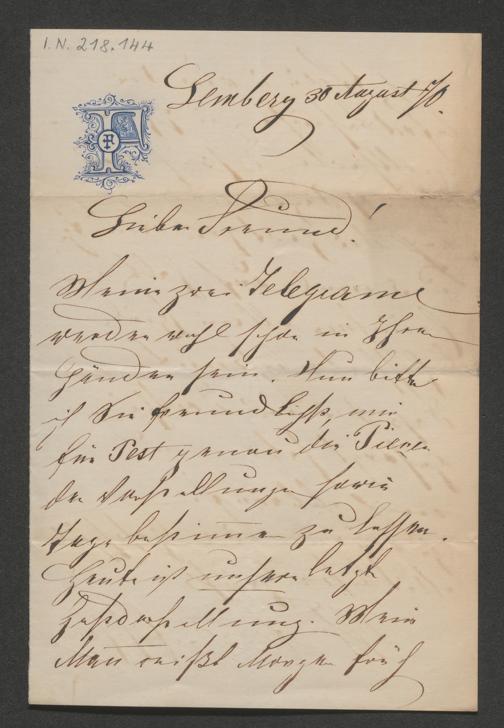 I.N. 218.144
Lemberg 30 August 70.
Lieber Freund!
Meine zwei Telegrame
werden wohl schon in Ihren
Händen sein. Nun bitte
ich Sie freundlichst, mir
für Pest genau die
der Vorstellungen sowie
Tage bestimmen zu lassen.
Heute ist unsere letzte
Gastvorstellung. Mein
Mann reißt Morgen früh